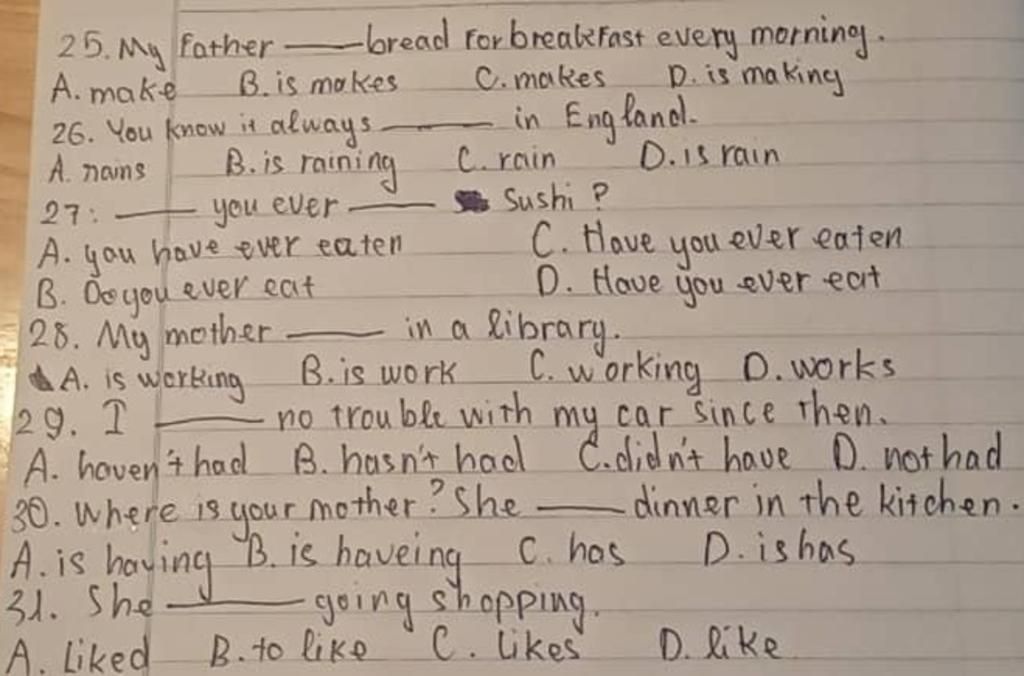 25. My father ——— bread for breakfast every morning.
A. make B. is makes C. makes D. is making
26. You know it always ——— in England.
A. rains B. is raining C. rain D. is rain
27: ——— you ever ——— Sushi ?
A. you have ever eaten C. Have you ever eaten
B. Do you ever eat D. Have you ever eat
28. My mother ——— in a library.
A. is working B. is work C. working D. works
29. I ——— no trouble with my car since then.
A. haven't had B. hasn't had C. didn't have D. not had
30. Where is your mother? She ——— dinner in the kitchen.
A. is having B. is haveing C. has D. is has
31. She ——— going shopping.
A. Liked B. to like C. likes D. like